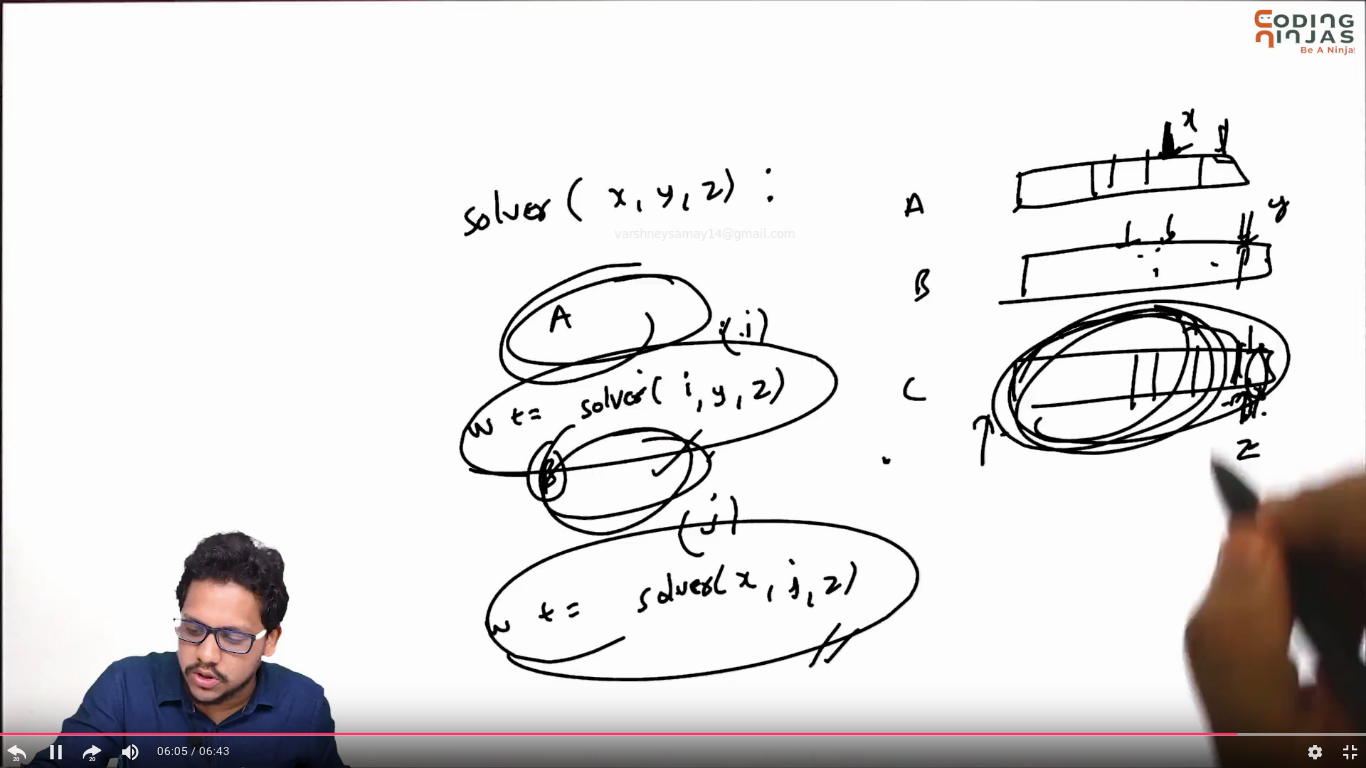 CODING
NINJAS
Be A Ninja!
x
A
y
solver( x, y, z) :
varshneysamay14@gmail.com
B
A
(i)
w t= solver( i, y, z)
C
z
B
(j)
w t= solver( x, j, z)
20
20
06:05 / 06:43